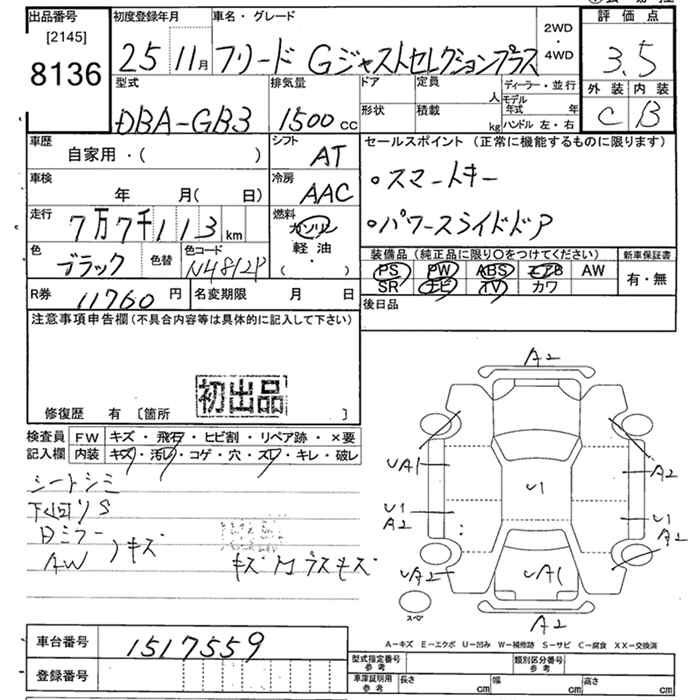 出品番号 初度登録年月 車名・グレード 評価点
[2145] 8136 25年 11月 フリード Gジャストセレクションプラス 2WD・4WD 3.5
外装 内装
C B
型式 排気量 ドア 定員 ディーラー・並行
DBA-GB3 1500cc 人 モデル年式 年
形状 積載 kg ハンドル 左・右
車歴 自家用・( ) シフト AT セールスポイント (正常に機能するものに限ります)
車検 年 月( 日) 冷房 AAC ・スマートキー
走行 7万7千113km 燃料 ガソリン 軽油・( ) ・パワースライドドア
色 ブラック 色替 色コード N4812P
装備品 (純正品に限り○をつけてください) 新車保証書
PS PW ABS エアB AW 有・無
SR ナビ TV カワ
R券 11760円 名変期限 月 日 後日品
注意事項申告欄(不具合内容等は具体的に記入して下さい)
初出品
修復歴 有 [箇所 ]
検査員記入欄 FW キズ・飛石・ヒビ割・リペア跡・×要
内装 キズ・汚レ・コゲ・穴・スレ・キレ・破レ
シートシミ
下回りS
AW キズ
A2
UA1 A2
U1
U1 A2 U1 A2
UA2 UA1 A2
スペア
A2
A-キズ E-エクボ U-凹み W-補修跡 S-サビ C-腐食 XX-交換済
車台番号 1517559
登録番号
型式指定番号 参考 類別区分番号 参考
車庫証明用 参考 長さ cm 幅 cm 高さ cm